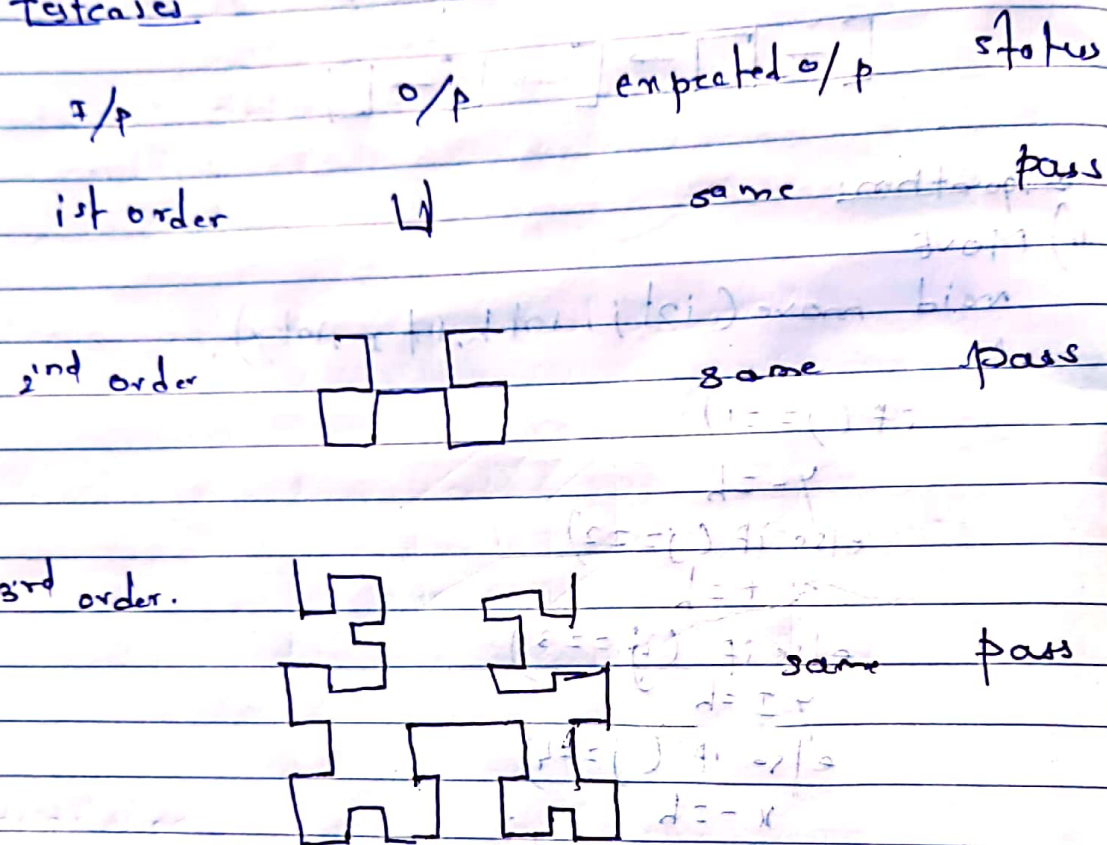 Testcases
I/p o/p enpected o/p status
ist order same pass
2nd order same pass
3rd order. same pass